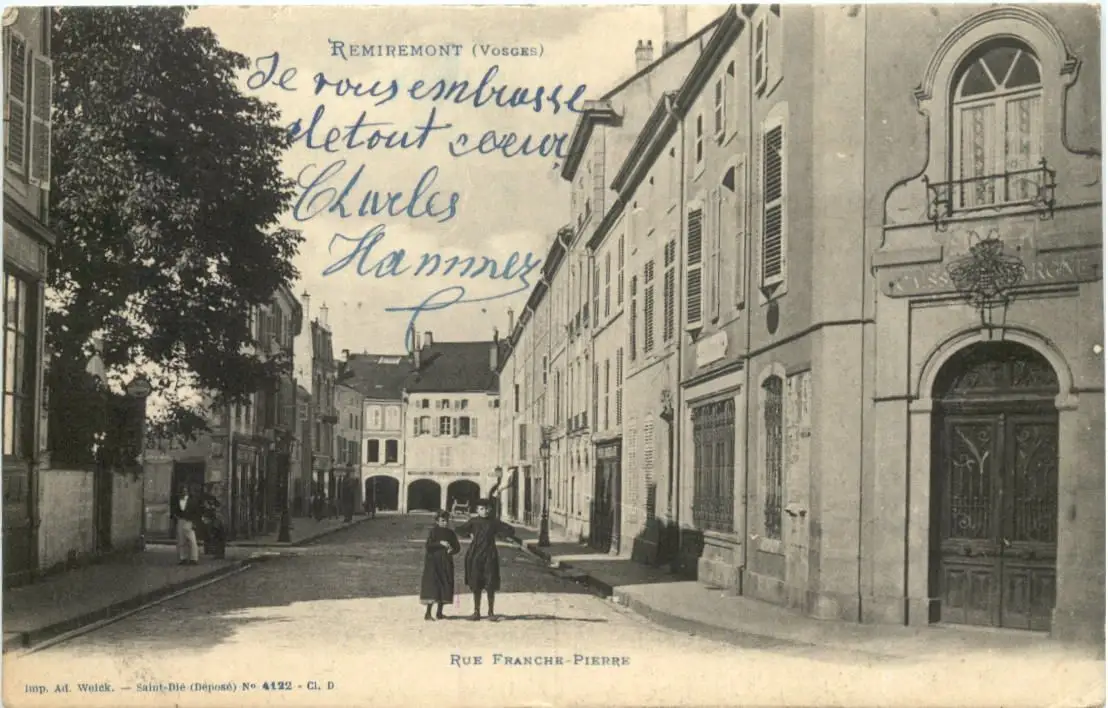 REMIREMONT (VOSGES)
Je vous embrasse
de tout coeur
Charles
Hammez
RUE FRANCHE-PIERRE
Imp. Ad. Weick. — Saint-Dié (Déposé) No 4122 - Cl. D